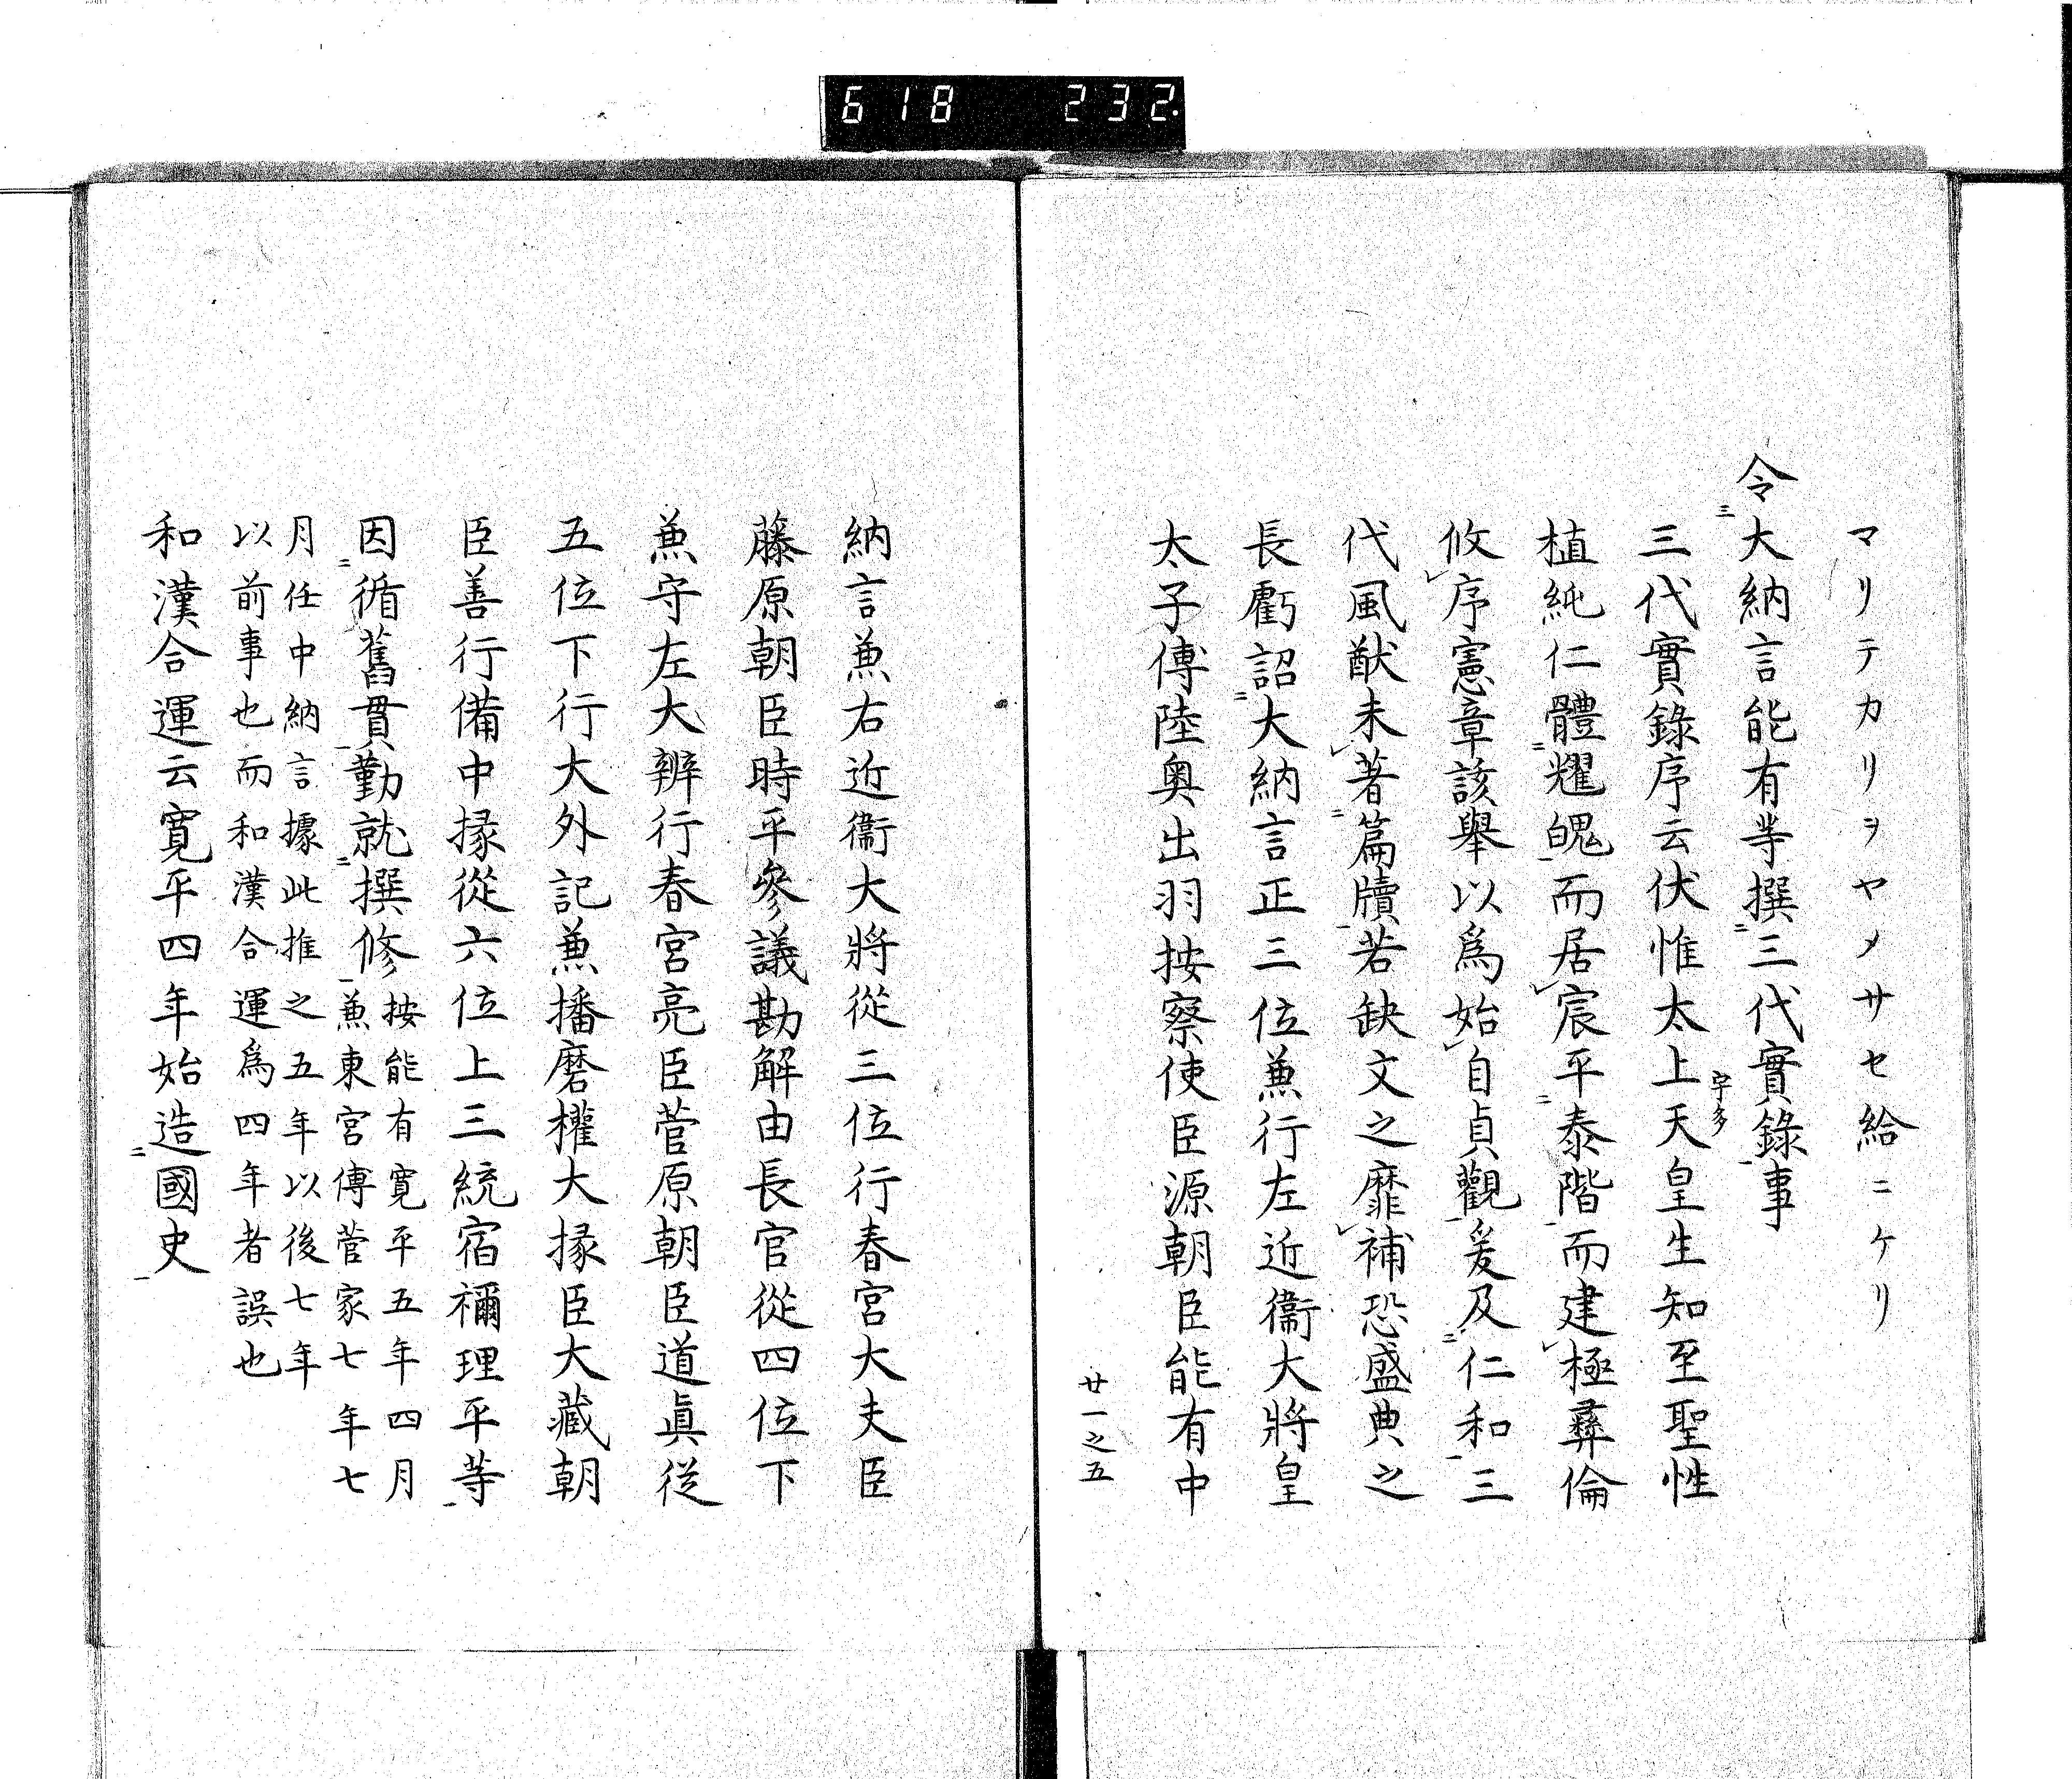 618 232.
マリテカリヲヤメサセ給ニケリ
令三大納言能有等撰二三代實錄一事
三代實錄序云伏惟太上天皇宇多生知至聖性
植純仁體二耀魄一而居レ宸平二泰階一而建レ極彝倫
攸レ序憲章該舉以爲始レ自貞觀一爰及二仁和一三
代風猷未レ著二篇牘一若缺文之靡レ補恐盛典之
長虧詔二大納言正三位兼行左近衞大將皇
太子傅陸奧出羽按察使臣源朝臣能有中
廿一之五
納言兼右近衞大將從三位行春宮大夫臣
藤原朝臣時平參議勘解由長官從四位下
兼守左大辨行春宮亮臣菅原朝臣道眞從
五位下行大外記兼播磨權大掾臣大藏朝
臣善行備中掾從六位上三統宿禰理平等一
因二循舊貫一勤就二撰修一
按能有寬平五年四月
兼東宮傅菅家七年七
月任中納言據此推之五年以後七年
以前事也而和漢合運爲四年者誤也
和漢合運云寬平四年始造二國史一